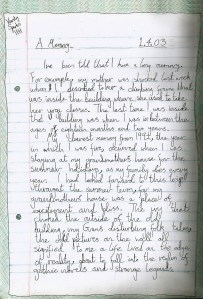 A Memory 2.4.03
I've been told that I have a long memory.
For example my mother was shocked last week
when I described to her a climbing frame that
was inside the building where she used to take
her yoga classes. The last time I was inside
that building was when I was in between the
ages of eighteen months and two years.
My clearest memory from 1994, the year
in which I was five, occurred when I was
staying at my grandmother's house for the
summer holidays, as my family does every
year. I had looked forward to this
throughout the summer term, for my
grandmother's house was a place of
excitement and bliss. The ivy that
the outside of the old
building, my Gran's disturbing folk tales,
the old pictures on the wall all
signified to me a life lived on the edge
of reality, about to fall into the realm of
gothic novels and strange legends.